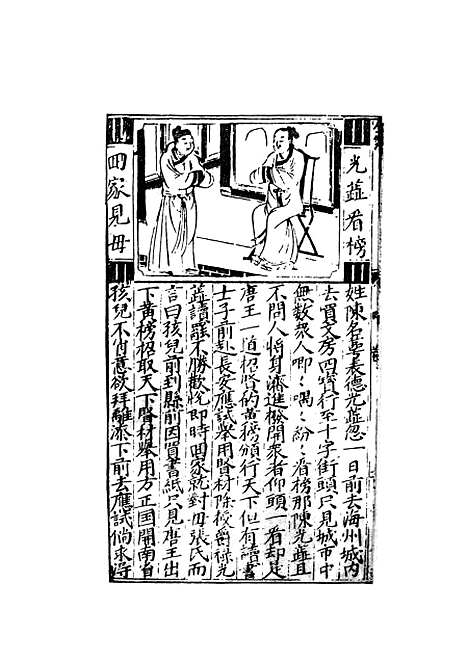 光蕋看榜
囬家見母
姓陳名萼表德光蕋忽一日前去海州城内
去買文房四寳行至十字街頭只見城市中
無数衆人唧〻喝〻紛〻看榜那陳光蕋且
不問人將身濟進撥開衆者仰頭一看却是
唐王一道招賢的黄榜頒行天下但有讀書
士子前赴長安應試舉用賢材除授爵禄光
蕋讀罷不勝歡悦即時囬家就對母張氏而
言曰孩兒前到縣前因買書紙只見唐王出
下黄榜招取天下賢材舉用方正国開南省
孩兒不肖意欲拜離漆下前去應試倘求得